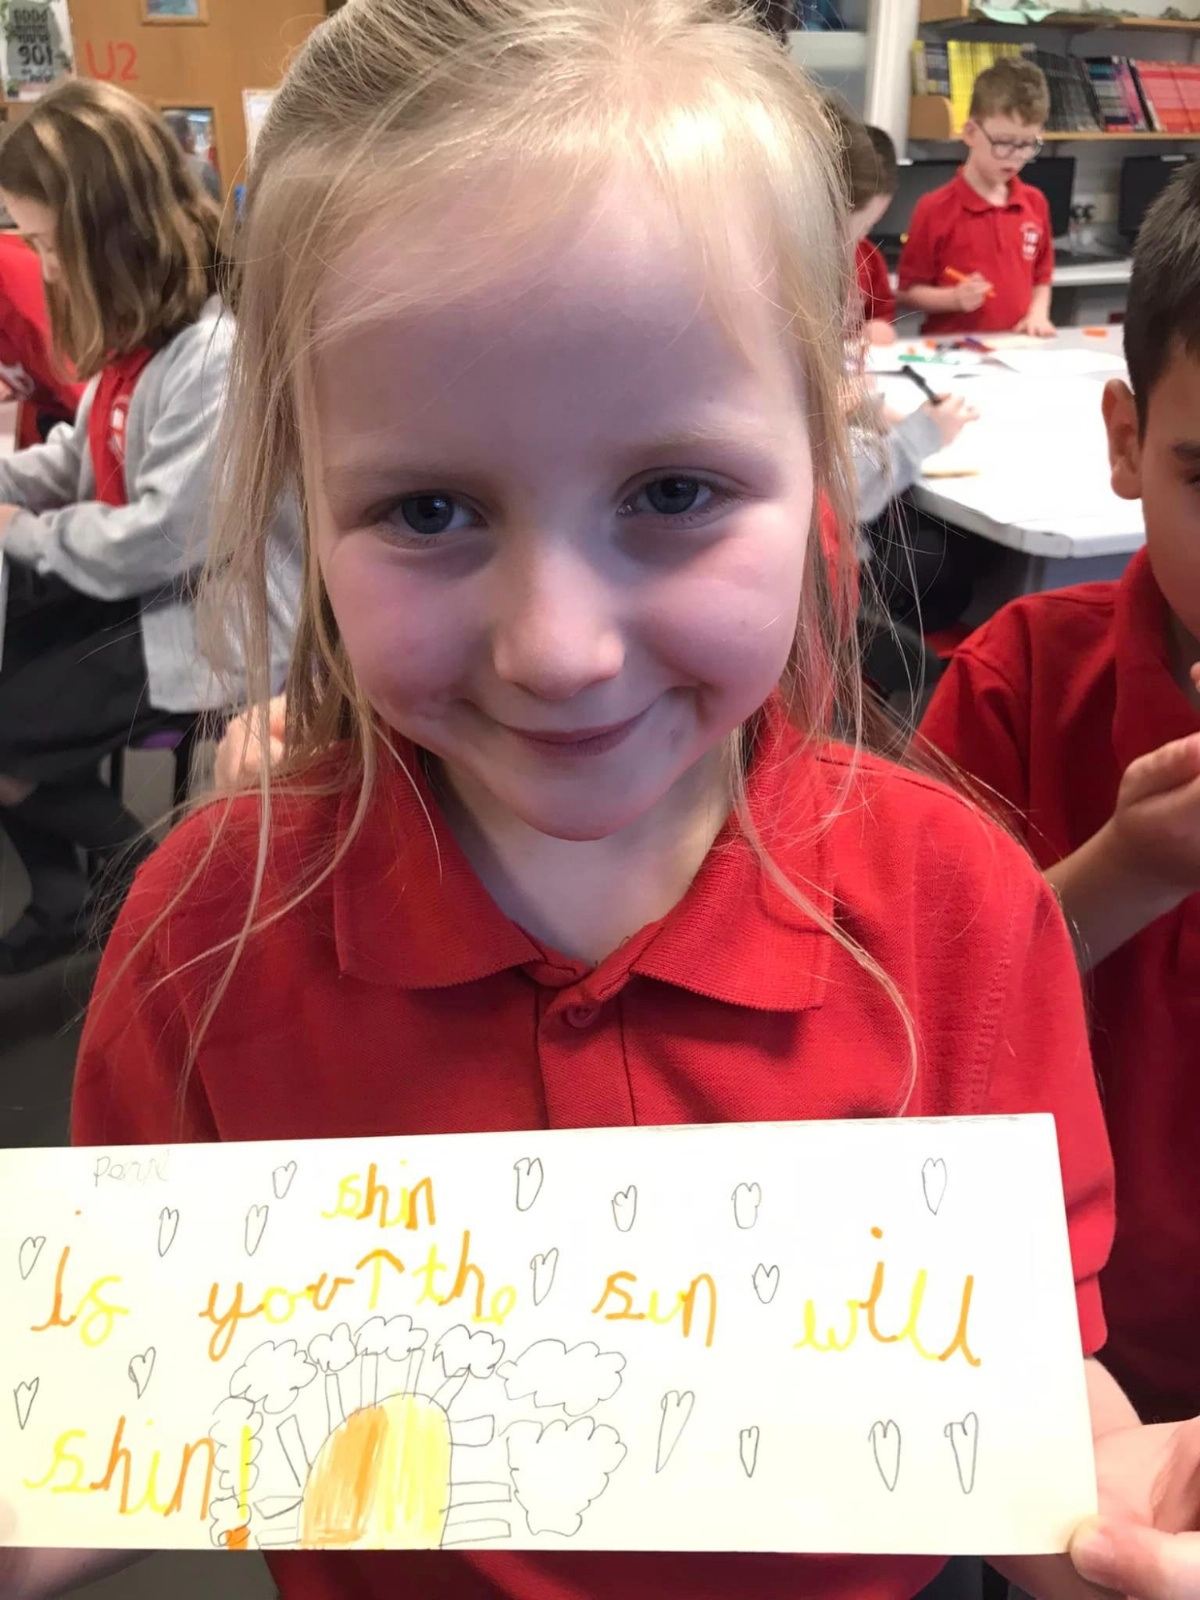 U2
Pearl
shin
is you↑ the sun will
shin!